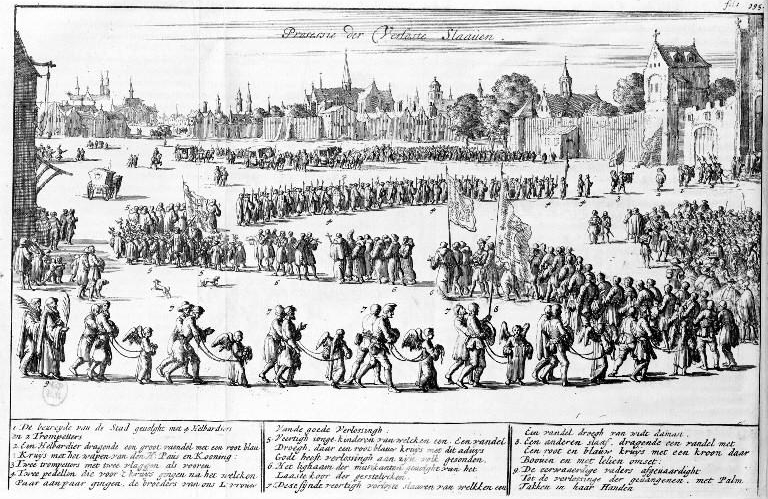 fol: 195.
Processie der Verloste Slaaven.
1. De beureyde van de Stad gevolght met 4 Helbardiers
en 2 Trompetters
2. Een Helbardier dragende een groot vaendel met een root blau
Kruys met het wapen van den H. Paus en Kooning
3. Twee trompetters met twee vlaggen als vooren
4. Twee pedellen die voor t kruys gingen na het welcken
Paar aan paar gingen de broeders van ons L. vrouw
Van de goede Verlossingh.
5. Veertigh ionge kinderen van welcken een Een vandel
Droegh, daar een root blauw kruys met dit advys
Godt heeft verlossingh aan zijn volk gesonden.
6. Het lighaam der musikanten gevolght van het
Laaste koor der geestelyken.
7. Dese syndt veertigh verloste slaaven van welkken een
Een vandel droegh van widt damast.
8. Een anderen slaaf, dragende een vandel met
Een root en blaauw kruys met een kroon daar
Boonen en met lelien omset.
9. De eerwaerdige vaders afgevaardight
Tot de verlossinge der gevangenen, met Palm
Takken in haar Handen
5
5
6
6
4
4
3
7
7
7
7
7
8
9